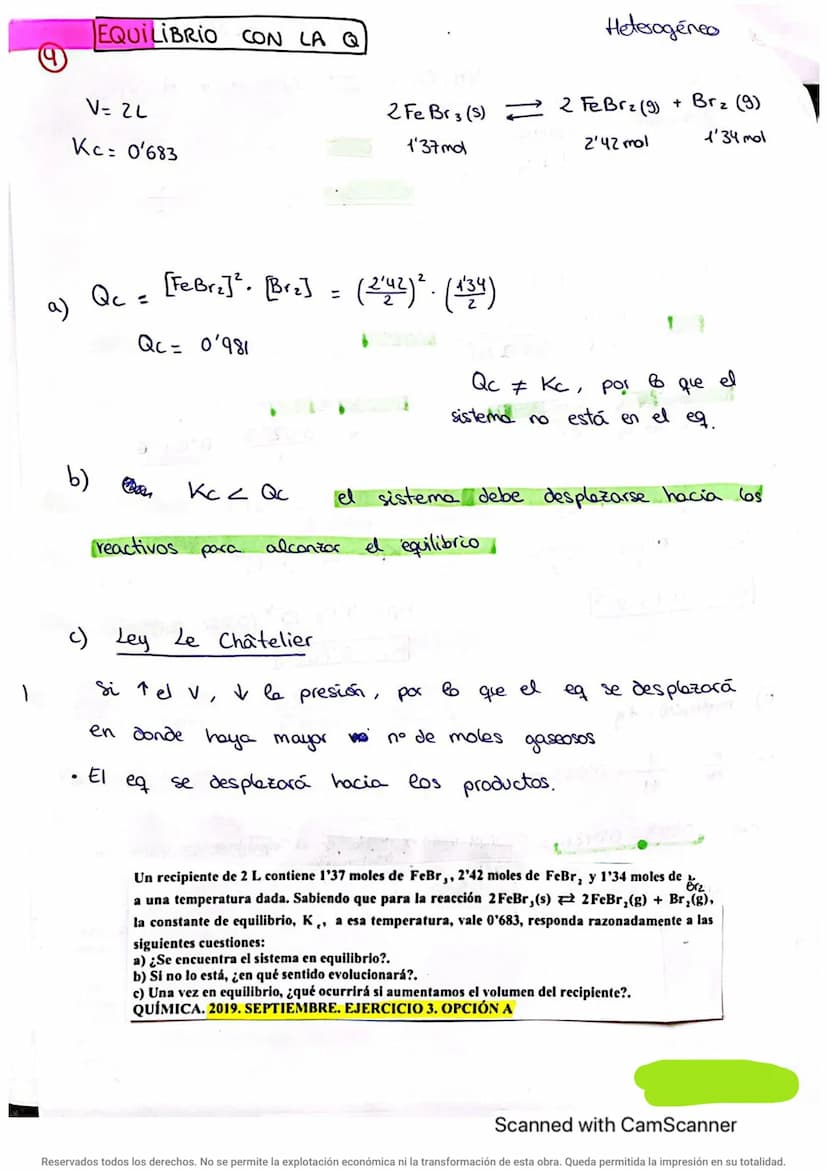 EQUILIBRIO CON LA Q
Heterogéneo
4
V= 2L
2 FeBr3 (s) ⇌ 2 FeBr2 (g) + Br2 (g)
Kc = 0'683
1'37mol 2'42 mol 1'34 mol
a) Qc = [FeBr2]². [Br2] = (2'42/2)² · (1'34/2)
Qc = 0'981
Qc ≠ Kc, por lo que el
sistema no está en el eq.
b) Kc < Qc el sistema debe desplazarse hacia los
reactivos para alcanzar el equilibrio
c) Ley Le Châtelier
Si ↑ el V, ↓ la presión, por lo que el eq se desplazará
en donde haya mayor nº de moles gaseosos
• El eq se desplazará hacia los productos.
Un recipiente de 2 L contiene 1'37 moles de FeBr3, 2'42 moles de FeBr2 y 1'34 moles de
Br2
a una temperatura dada. Sabiendo que para la reacción 2FeBr3(s) ⇌ 2FeBr2(g) + Br2(g),
la constante de equilibrio, Kc, a esa temperatura, vale 0'683, responda razonadamente a las
siguientes cuestiones:
a) ¿Se encuentra el sistema en equilibrio?.
b) Si no lo está, ¿en qué sentido evolucionará?.
c) Una vez en equilibrio, ¿qué ocurrirá si aumentamos el volumen del recipiente?.
QUÍMICA. 2019. SEPTIEMBRE. EJERCICIO 3. OPCIÓN A
Scanned with CamScanner
Reservados todos los derechos. No se permite la explotación económica ni la transformación de esta obra. Queda permitida la impresión en su totalidad.